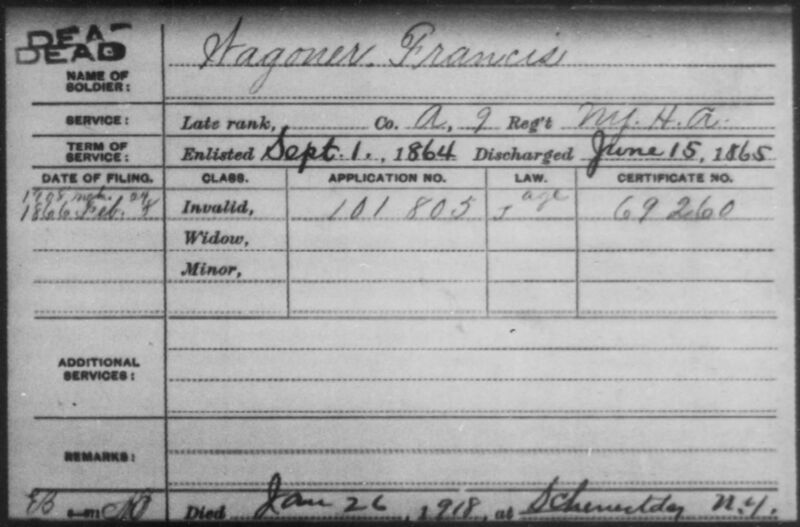 DEA-
DEAD
Wagoner, Francis
NAME OF SOLDIER:
SERVICE: Late rank, Co. A, 9 Reg't N.Y. H. A.
TERM OF SERVICE: Enlisted Sept. 1., 1864 Discharged June 15, 1865
DATE OF FILING. CLASS. APPLICATION NO. LAW. CERTIFICATE NO.
1908 mch. 24 age
1866 Feb. 8 Invalid, 101 805 69260
Widow,
Minor,
ADDITIONAL SERVICES:
REMARKS:
EB Died Jan 26, 1918, at Schenectdy N.Y.